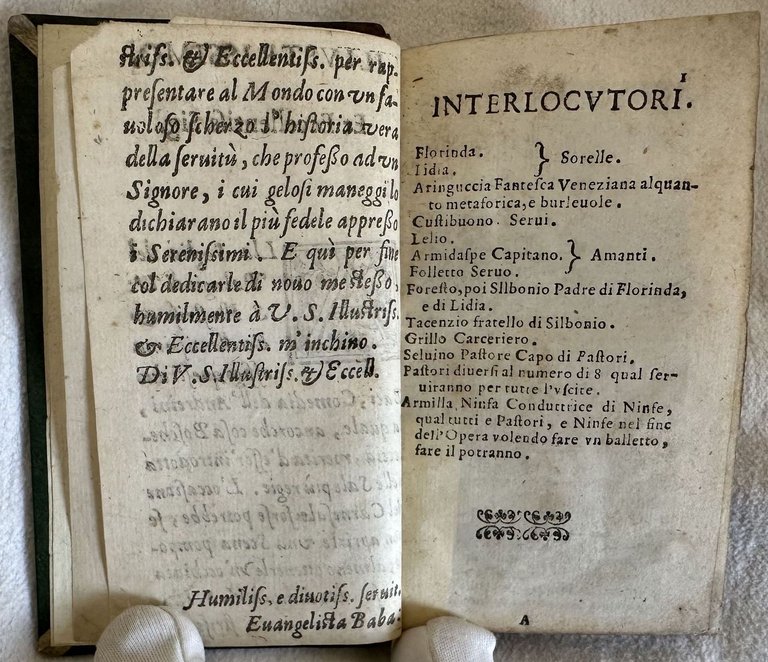 ſtriſs. & Eccellentiſs. per rap-
preſentare al Mondo con vn fa-
uoloſo ſcherzo l'hiſtoria vera
della ſeruitù, che profeſſo ad vn
Signore, i cui geloſi maneggi lo
dichiarano il più fedele appreſſo
i Sereniſsimi. E quì per fine
col dedicarle di nouo me ſteſſo,
humilmente à V. S. Illuſtriſs.
& Eccellentiſs. m'inchino.
Di V. S. Illuſtriſs. & Eccell.
Humiliſs. e diuotiſs. ſeruit.
Euangeliſta Baba.
1
INTERLOCVTORI.
Florinda. } Sorelle.
Lidia.
Aringuccia Fanteſca Veneziana alquan-
to metaforica, e burleuole.
Cuſtibuono. Serui.
Lelio.
Armidaſpe Capitano. } Amanti.
Folletto Seruo.
Foreſto, poi Sllbonio Padre di Florinda,
e di Lidia.
Tacenzio fratello di Silbonio.
Grillo Carceriero.
Seluino Paſtore Capo di Paſtori.
Paſtori diuerſi al numero di 8 qual ſer-
uiranno per tutte l'vſcite.
Armilla Ninfa Conduttrice di Ninfe,
qual tutti e Paſtori, e Ninfe nel fine
dell'Opera volendo fare vn balletto,
fare il potranno.
A